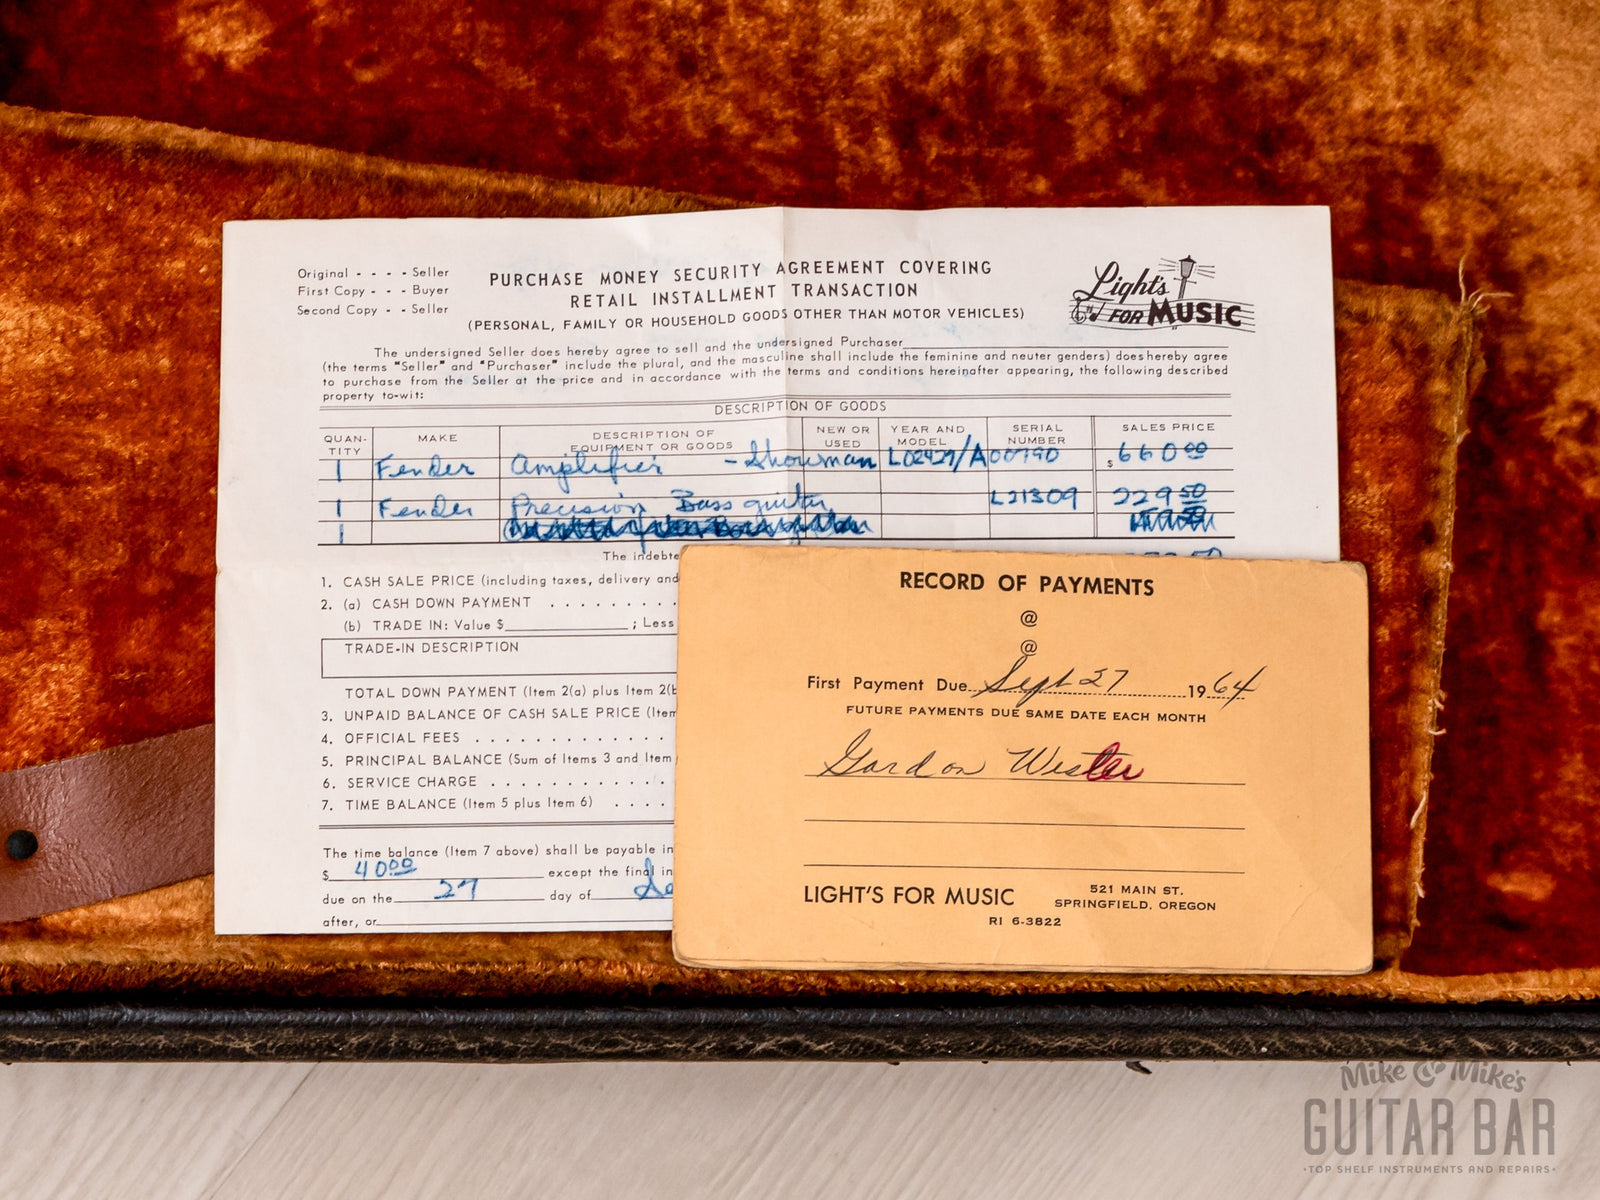 Original - - - - Seller
First Copy - - - Buyer
Second Copy - - Seller
PURCHASE MONEY SECURITY AGREEMENT COVERING
RETAIL INSTALLMENT TRANSACTION
(PERSONAL, FAMILY OR HOUSEHOLD GOODS OTHER THAN MOTOR VEHICLES)
Light's
FOR MUSIC
The undersigned Seller does hereby agree to sell and the undersigned Purchaser
(the terms "Seller" and "Purchaser" include the plural, and the masculine shall include the feminine and neuter genders) does hereby agree
to purchase from the Seller at the price and in accordance with the terms and conditions hereinafter appearing, the following described
property to-wit:
DESCRIPTION OF GOODS
QUAN-TITY MAKE DESCRIPTION OF EQUIPMENT OR GOODS NEW OR USED YEAR AND MODEL SERIAL NUMBER SALES PRICE
1 Fender Amplifier - Showman L02427/A00790 $660.00
1 Fender Precision Bass guitar L21309 229.50
1
The indebte
1. CASH SALE PRICE (including taxes, delivery and
2. (a) CASH DOWN PAYMENT . . . . . . . .
(b) TRADE IN: Value $ ; Less
TRADE-IN DESCRIPTION
TOTAL DOWN PAYMENT (Item 2(a) plus Item 2(b
3. UNPAID BALANCE OF CASH SALE PRICE (Item
4. OFFICIAL FEES . . . . . . . . . . . .
5. PRINCIPAL BALANCE (Sum of Items 3 and Item
6. SERVICE CHARGE . . . . . . . . . . .
7. TIME BALANCE (Item 5 plus Item 6) . . . .
The time balance (Item 7 above) shall be payable in
$ 40.00 except the final in
due on the 27 day of Se
after, or
RECORD OF PAYMENTS
@
@
First Payment Due Sept 27 1964
FUTURE PAYMENTS DUE SAME DATE EACH MONTH
Gordon
LIGHT'S FOR MUSIC
521 MAIN ST.
SPRINGFIELD, OREGON
RI 6-3822
Mike & Mike's
GUITAR BAR
·TOP SHELF INSTRUMENTS AND REPAIRS·